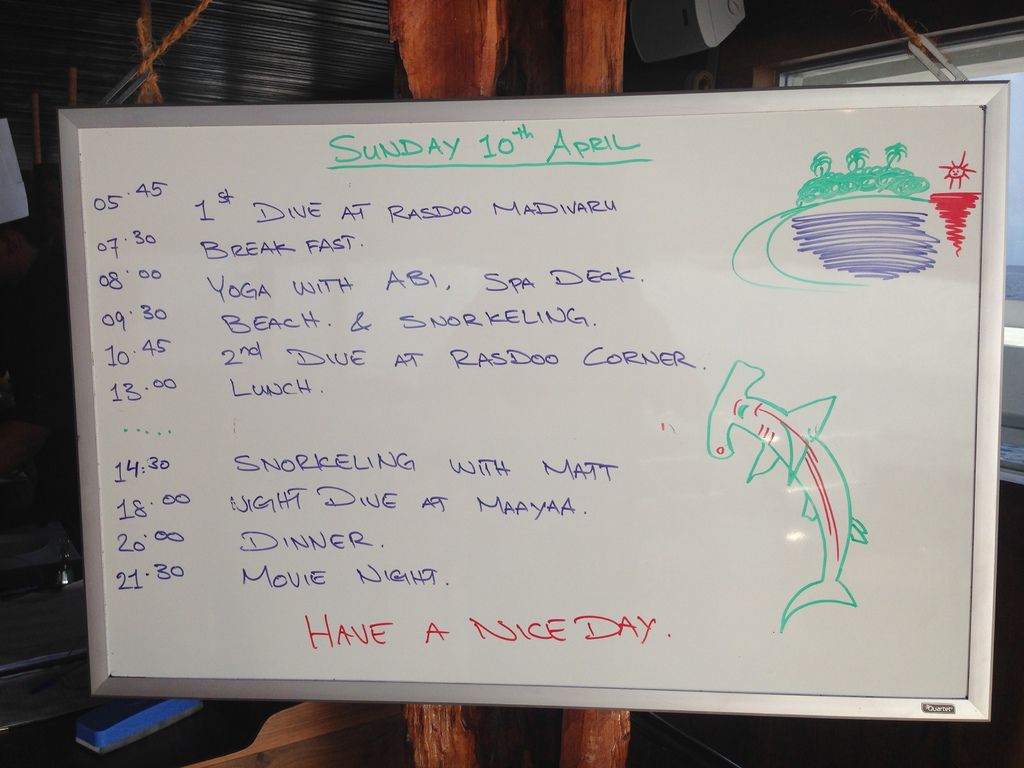 SUNDAY 10th APRIL
05.45 1st DIVE AT RASDOO MADIVARU
07.30 BREAKFAST.
08.00 YOGA WITH ABI, SPA DECK.
09.30 BEACH. & SNORKELING.
10.45 2nd DIVE AT RASDOO CORNER.
13.00 LUNCH.
.....
14:30 SNORKELING WITH MATT
18.00 NIGHT DIVE AT MAAYAA.
20.00 DINNER.
21.30 MOVIE NIGHT.
HAVE A NICE DAY.
Quartet